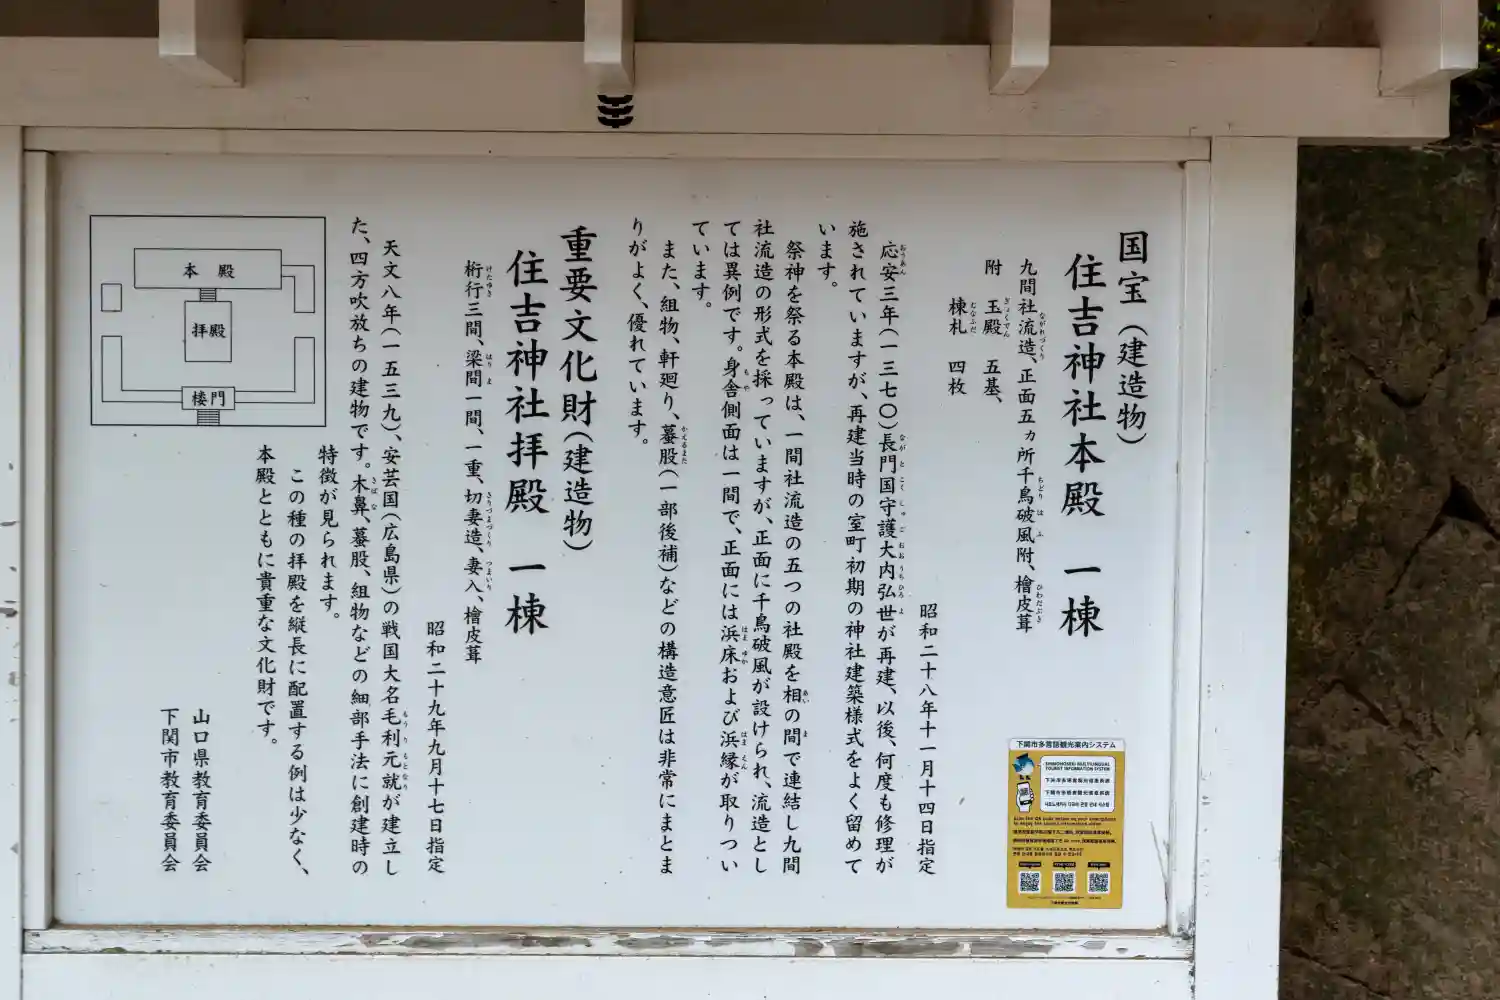 国宝（建造物）
住吉神社本殿 一棟
九間社流造、正面五ヵ所千鳥破風附、檜皮葺
附 玉殿 五基、
棟札 四枚
昭和二十八年十一月十四日指定
応安三年（一三七〇）長門国守護大内弘世が再建、以後、何度も修理が
施されていますが、再建当時の室町初期の神社建築様式をよく留めて
います。
祭神を祭る本殿は、一間社流造の五つの社殿を相の間で連結し九間
社流造の形式を採っていますが、正面に千鳥破風が設けられ、流造とし
ては異例です。身舎側面は一間で、正面には浜床および浜縁が取りつい
ています。
また、組物、軒廻り、蟇股（一部後補）などの構造意匠は非常にまとま
りがよく、優れています。
重要文化財（建造物）
住吉神社拝殿 一棟
桁行三間、梁間一間、一重、切妻造、妻入、檜皮葺
昭和二十九年九月十七日指定
天文八年（一五三九）、安芸国（広島県）の戦国大名毛利元就が建立し
た、四方吹放ちの建物です。木鼻、蟇股、組物などの細部手法に創建時の
特徴が見られます。
この種の拝殿を縦長に配置する例は少なく、
本殿とともに貴重な文化財です。
山口県教育委員会
下関市教育委員会
本殿
拝殿
楼門
下関市多言語観光案内システム
SHIMONOSEKI MULTILINGUAL
TOURIST INFORMATION SYSTEM